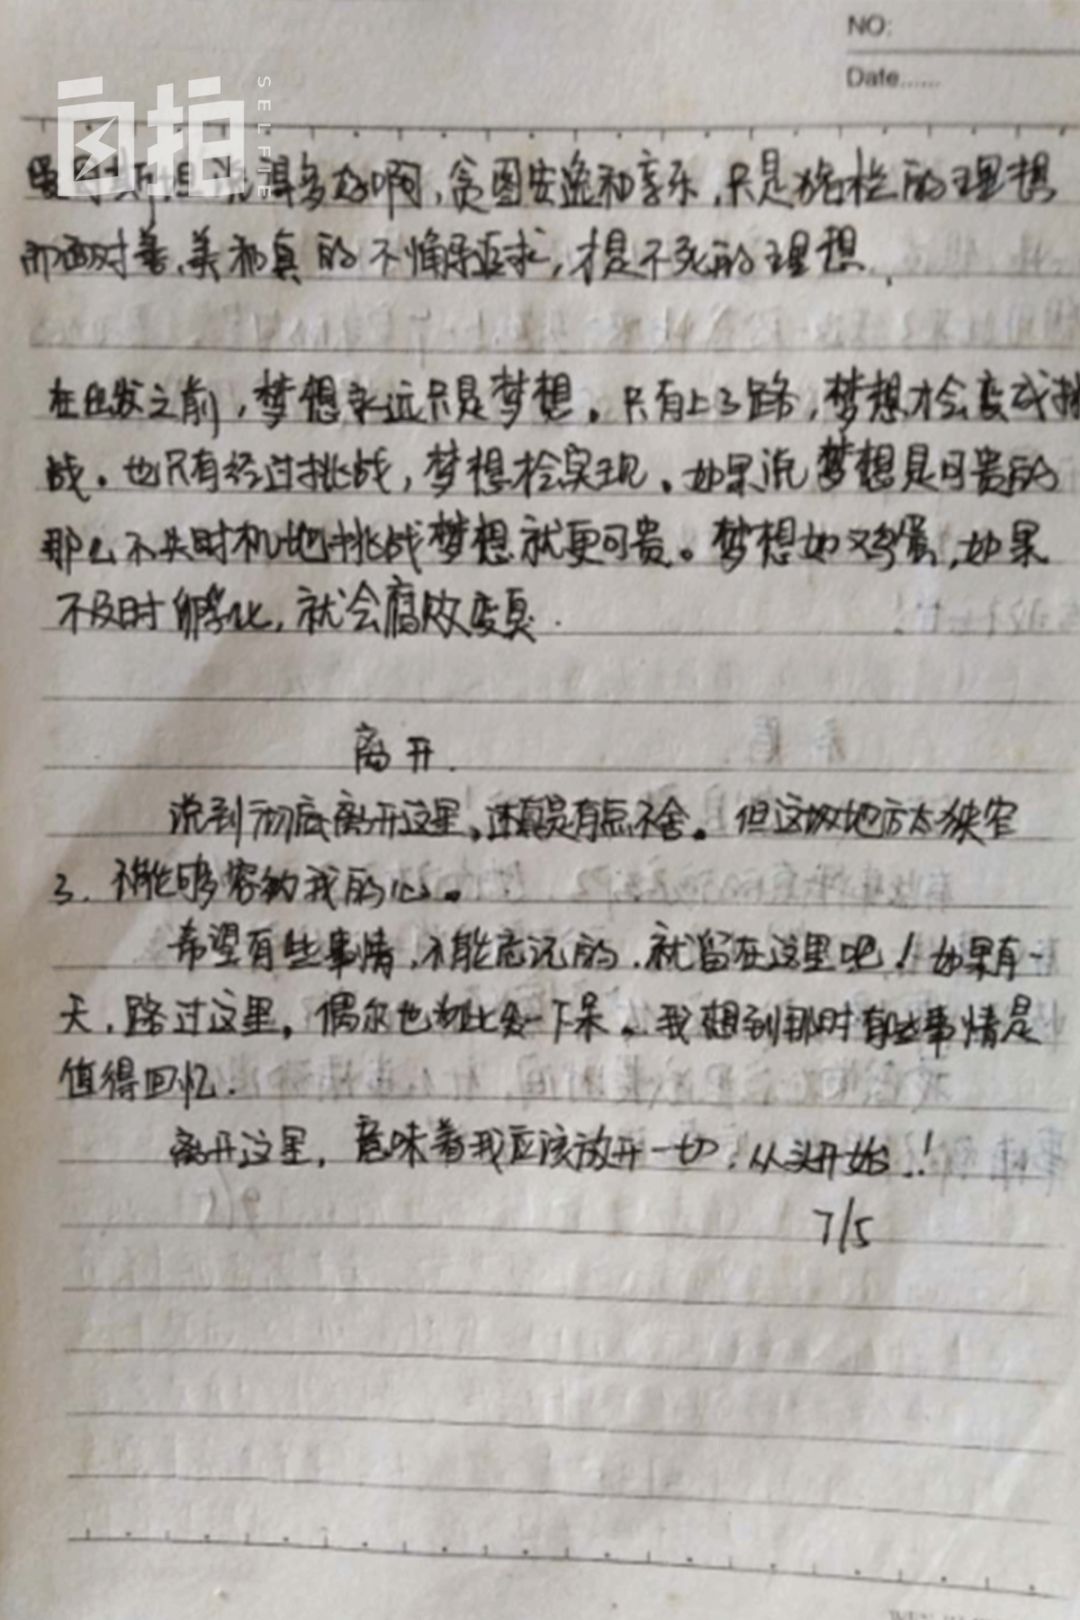 NO:
Date......
自拍
SELFIE
爱因斯坦说得多好啊，贪图安逸和享乐，只是猪栏的理想
而面对善、美和真的不懈追求，才是不死的理想.
在出发之前，梦想永远只是梦想。只有上了路，梦想才会变成挑
战。也只有经过挑战，梦想才会实现。如果说梦想是可贵的
那么不失时机地挑战梦想就更可贵。梦想如鸡蛋，如果
不及时孵化，就会腐败变臭.
离开.
说到彻底离开这里，还真是有点不舍。但这块地方太狭窄
了.不能够容纳我的心。
希望有些事情，不能忘记的，就留在这里吧！如果有一
天，路过这里，偶尔也会一下呆。我想到那时有些事情是
值得回忆.
离开这里，意味着我应该放开一切，从头开始！
7/5